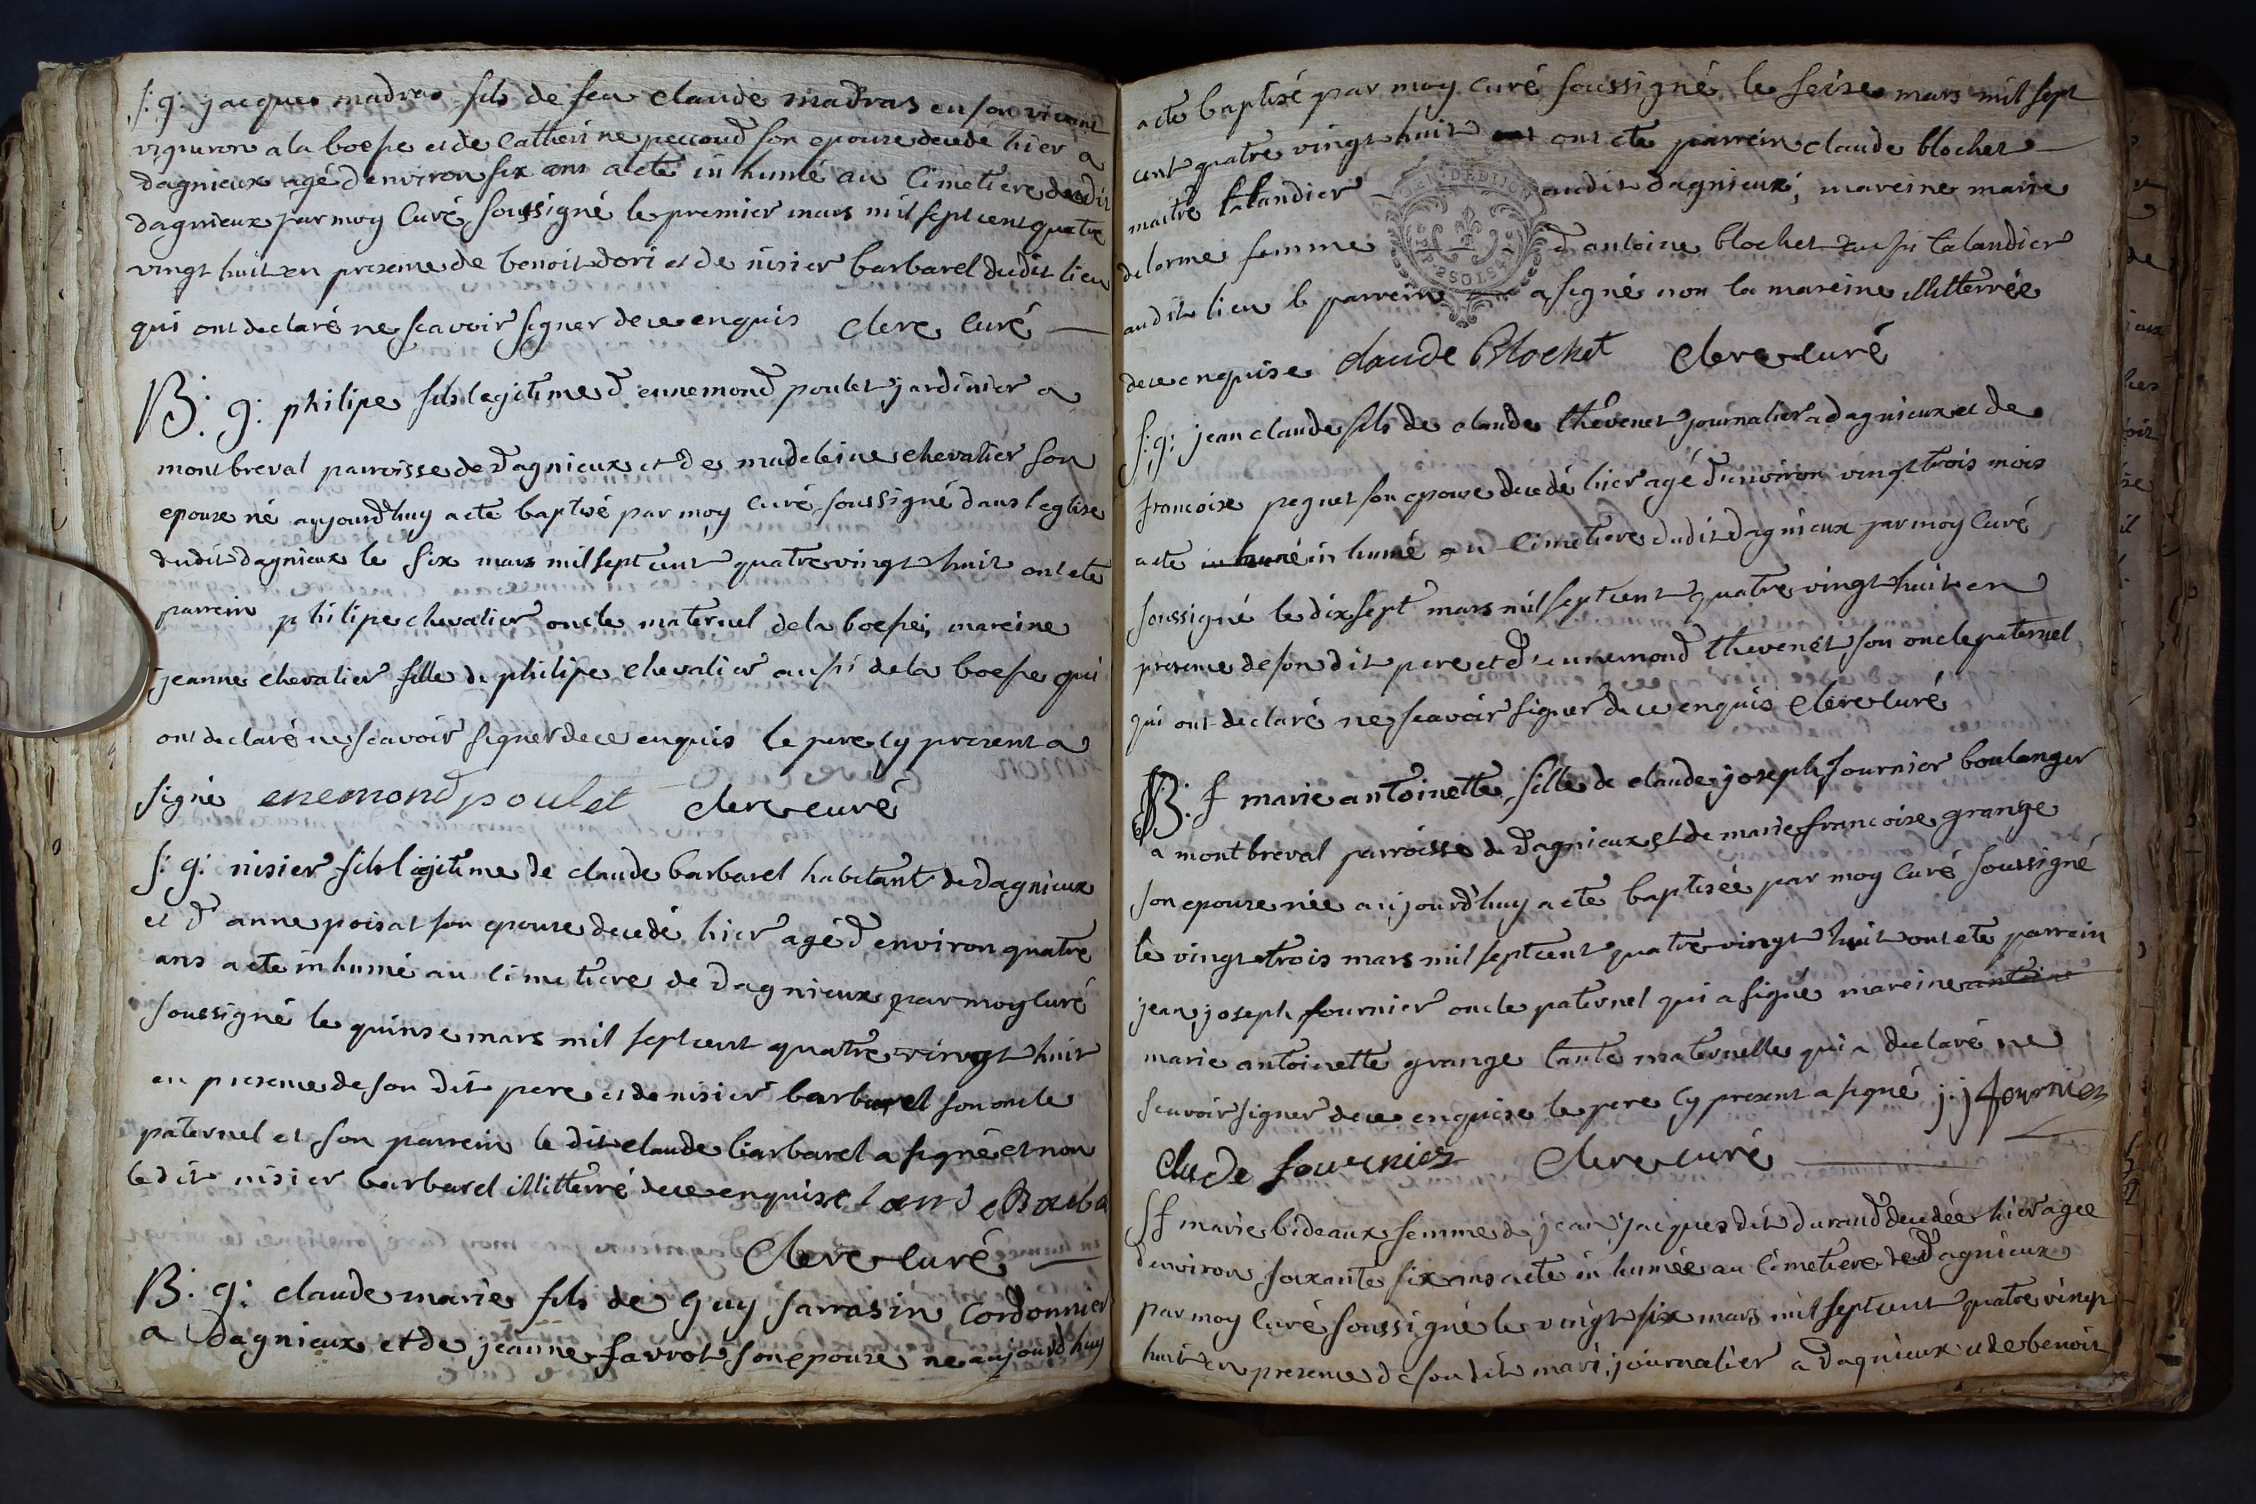 s: g: jacques madras fils de feu claude madras en son vivant
vigneron a la boesse et de catherine peccoud son epouse decedé hier a
dagnieux agé d'environ six ans a eté in humé au cimetiere dudit
dagnieux par moy curé soussigné le premier mars mil sept cent quatre
vingt huit en presence de benoit dori et de nisier barbarel dudit lieu
qui ont declaré ne scavoir signer de ce enquis clerc curé
B: g: philipe fils legitime d'ennemond poulet jardinier a
montbreval parroisse de dagnieux et de madeleine chevalier son
epouse né aujourd'huy a eté baptisé par moy curé soussigné dans l'eglise
dudit dagnieux le six mars mil sept cent quatre vingt huit ont eté
parrein philipe chevalier oncle maternel de la boesse, mareine
jeanne chevalier fille de philipe chevalier aussi de la boesse qui
ont declaré ne scavoir signer de ce enquis le pere cy present a
signé enemond poulet clerc curé
s: g: nisier fils legitime de claude barbarel habitant de dagnieux
et d'anne poisat son epouse decedé hier agé d'environ quatre
ans a eté inhumé au cimetiere de dagnieux par moy curé
soussigné le quinse mars mil sept cent quatre vingt huit
en presence de son dit pere et de nisier barbarel son oncle
paternel et son parrein le dit claude barbarel a signé et non
le dit nisier barbarel illitterré de ce enquis
clerc curé
B. g: claude marie fils de guy sarrasin cordonnier
a dagnieux et de jeanne favrot son epouse né aujourd'huy
a eté baptisé par moy curé soussigné le seise mars mil sept
cent quatre vingt huit ont eté parrein claude blochet
maitre talandier audit dagnieux, mareine marie
delorme femme d'antoine blochet aussi talandier
audit lieu le parrein a signé non la mareine illitterrée
de ce enquise claude Blochet clerc curé
s: g: jean claude fils de claude thévenet journalier a dagnieux et de
francoise peguet son epouse decedé hier agé d'environ vingt trois mois
a eté in humé au cimetiere dudit dagnieux par moy curé
soussigné le dix sept mars mil sept cent quatre vingt huit en
presence de son dit pere et d'ennemond thevenet son oncle paternel
qui ont declaré ne scavoir signer de ce enquis clerc curé
B: f marie antoinette fille de claude joseph fournier boulanger
a montbreval parroisse de dagnieux et de marie francoise grange
son epouse née aujourd'huy a eté baptisée par moy curé soussigné
le vingt trois mars mil sept cent quatre vingt huit ont eté parrein
jean joseph fournier oncle paternel qui a signé mareine antoine
marie antoinette grange tante maternelle qui a declaré ne
scavoir signer de ce enquise le pere cy present a signé j. j fournier
Clude fournier clerc curé
s f marie bideaux femme de jean jacques dit durand decedée hier agée
d'environ soixante six ans a eté in humée au cimetiere de dagnieux
par moy curé soussigné le vingt six mars mil sept cent quatre vingt
huit en presence de son dit mari journalier a dagnieux et de benoit